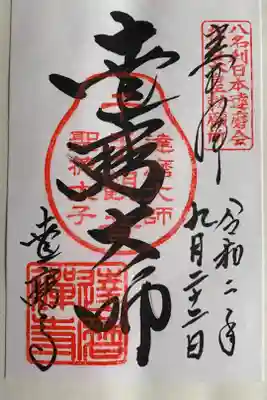 八名刹日本達磨会
令和二年
九月二十二日
達磨大師
達磨大師
聖徳太子
達磨寺
達磨寺